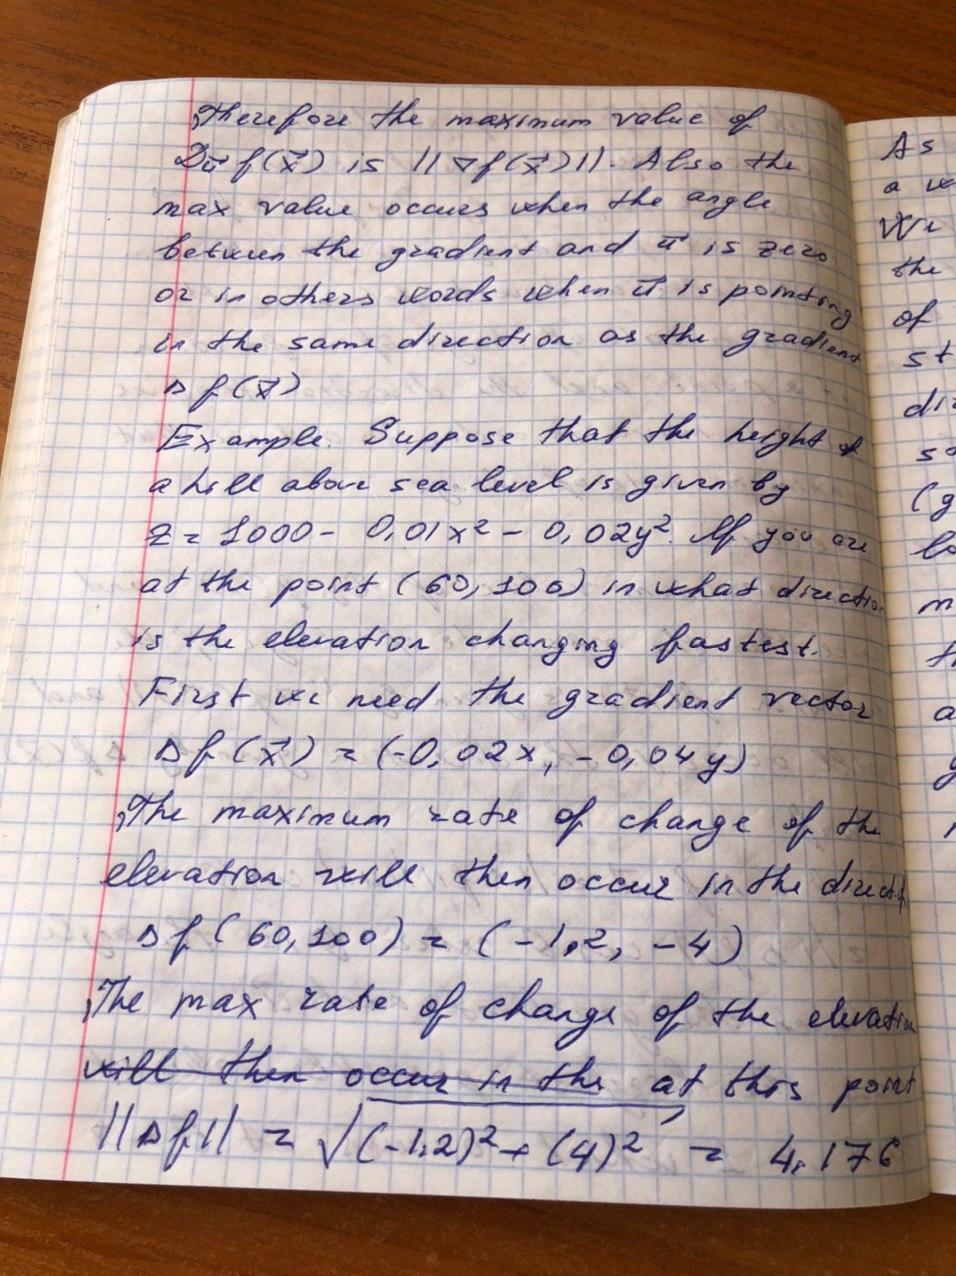 Therefore the maximum value of
D_u⃗ f(x⃗) is ||∇f(x⃗)||. Also the
max value occurs when the angle
between the gradient and u⃗ is zero
or in others words when u⃗ is pointing
in the same direction as the gradient
Δf(x⃗)
Example. Suppose that the height of
a hill above sea level is given by
z = 1000 - 0,01x² - 0,02y². If you are
at the point (60, 100) in what direction
is the elevation changing fastest.
First we need the gradient vector
Δf(x⃗) = (-0,02x, -0,04y)
The maximum rate of change of the
elevation will then occur in the direct
Δf(60, 100) = (-1,2, -4)
The max rate of change of the elevation
will then occur in the at this point
||Δf|| = √(-1.2)² + (4)² = 4.176
As
a
the
of
st
di
(g
m
a